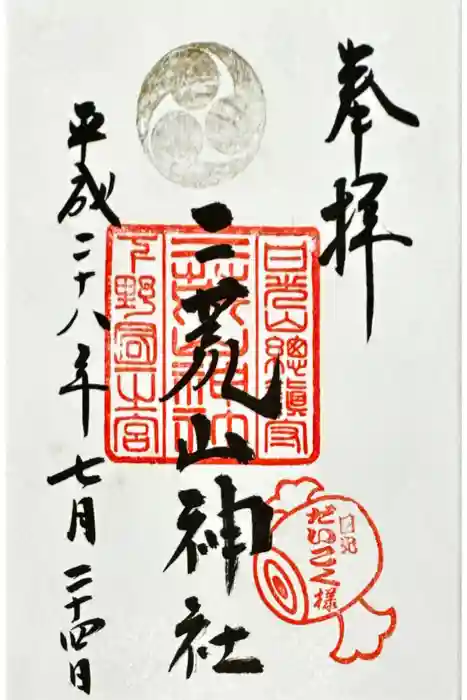 奉拝
二荒山神社
平成二十八年七月二十四日
日光山總鎮守
二荒山神社
下野國一之宮
日光
だいこく様